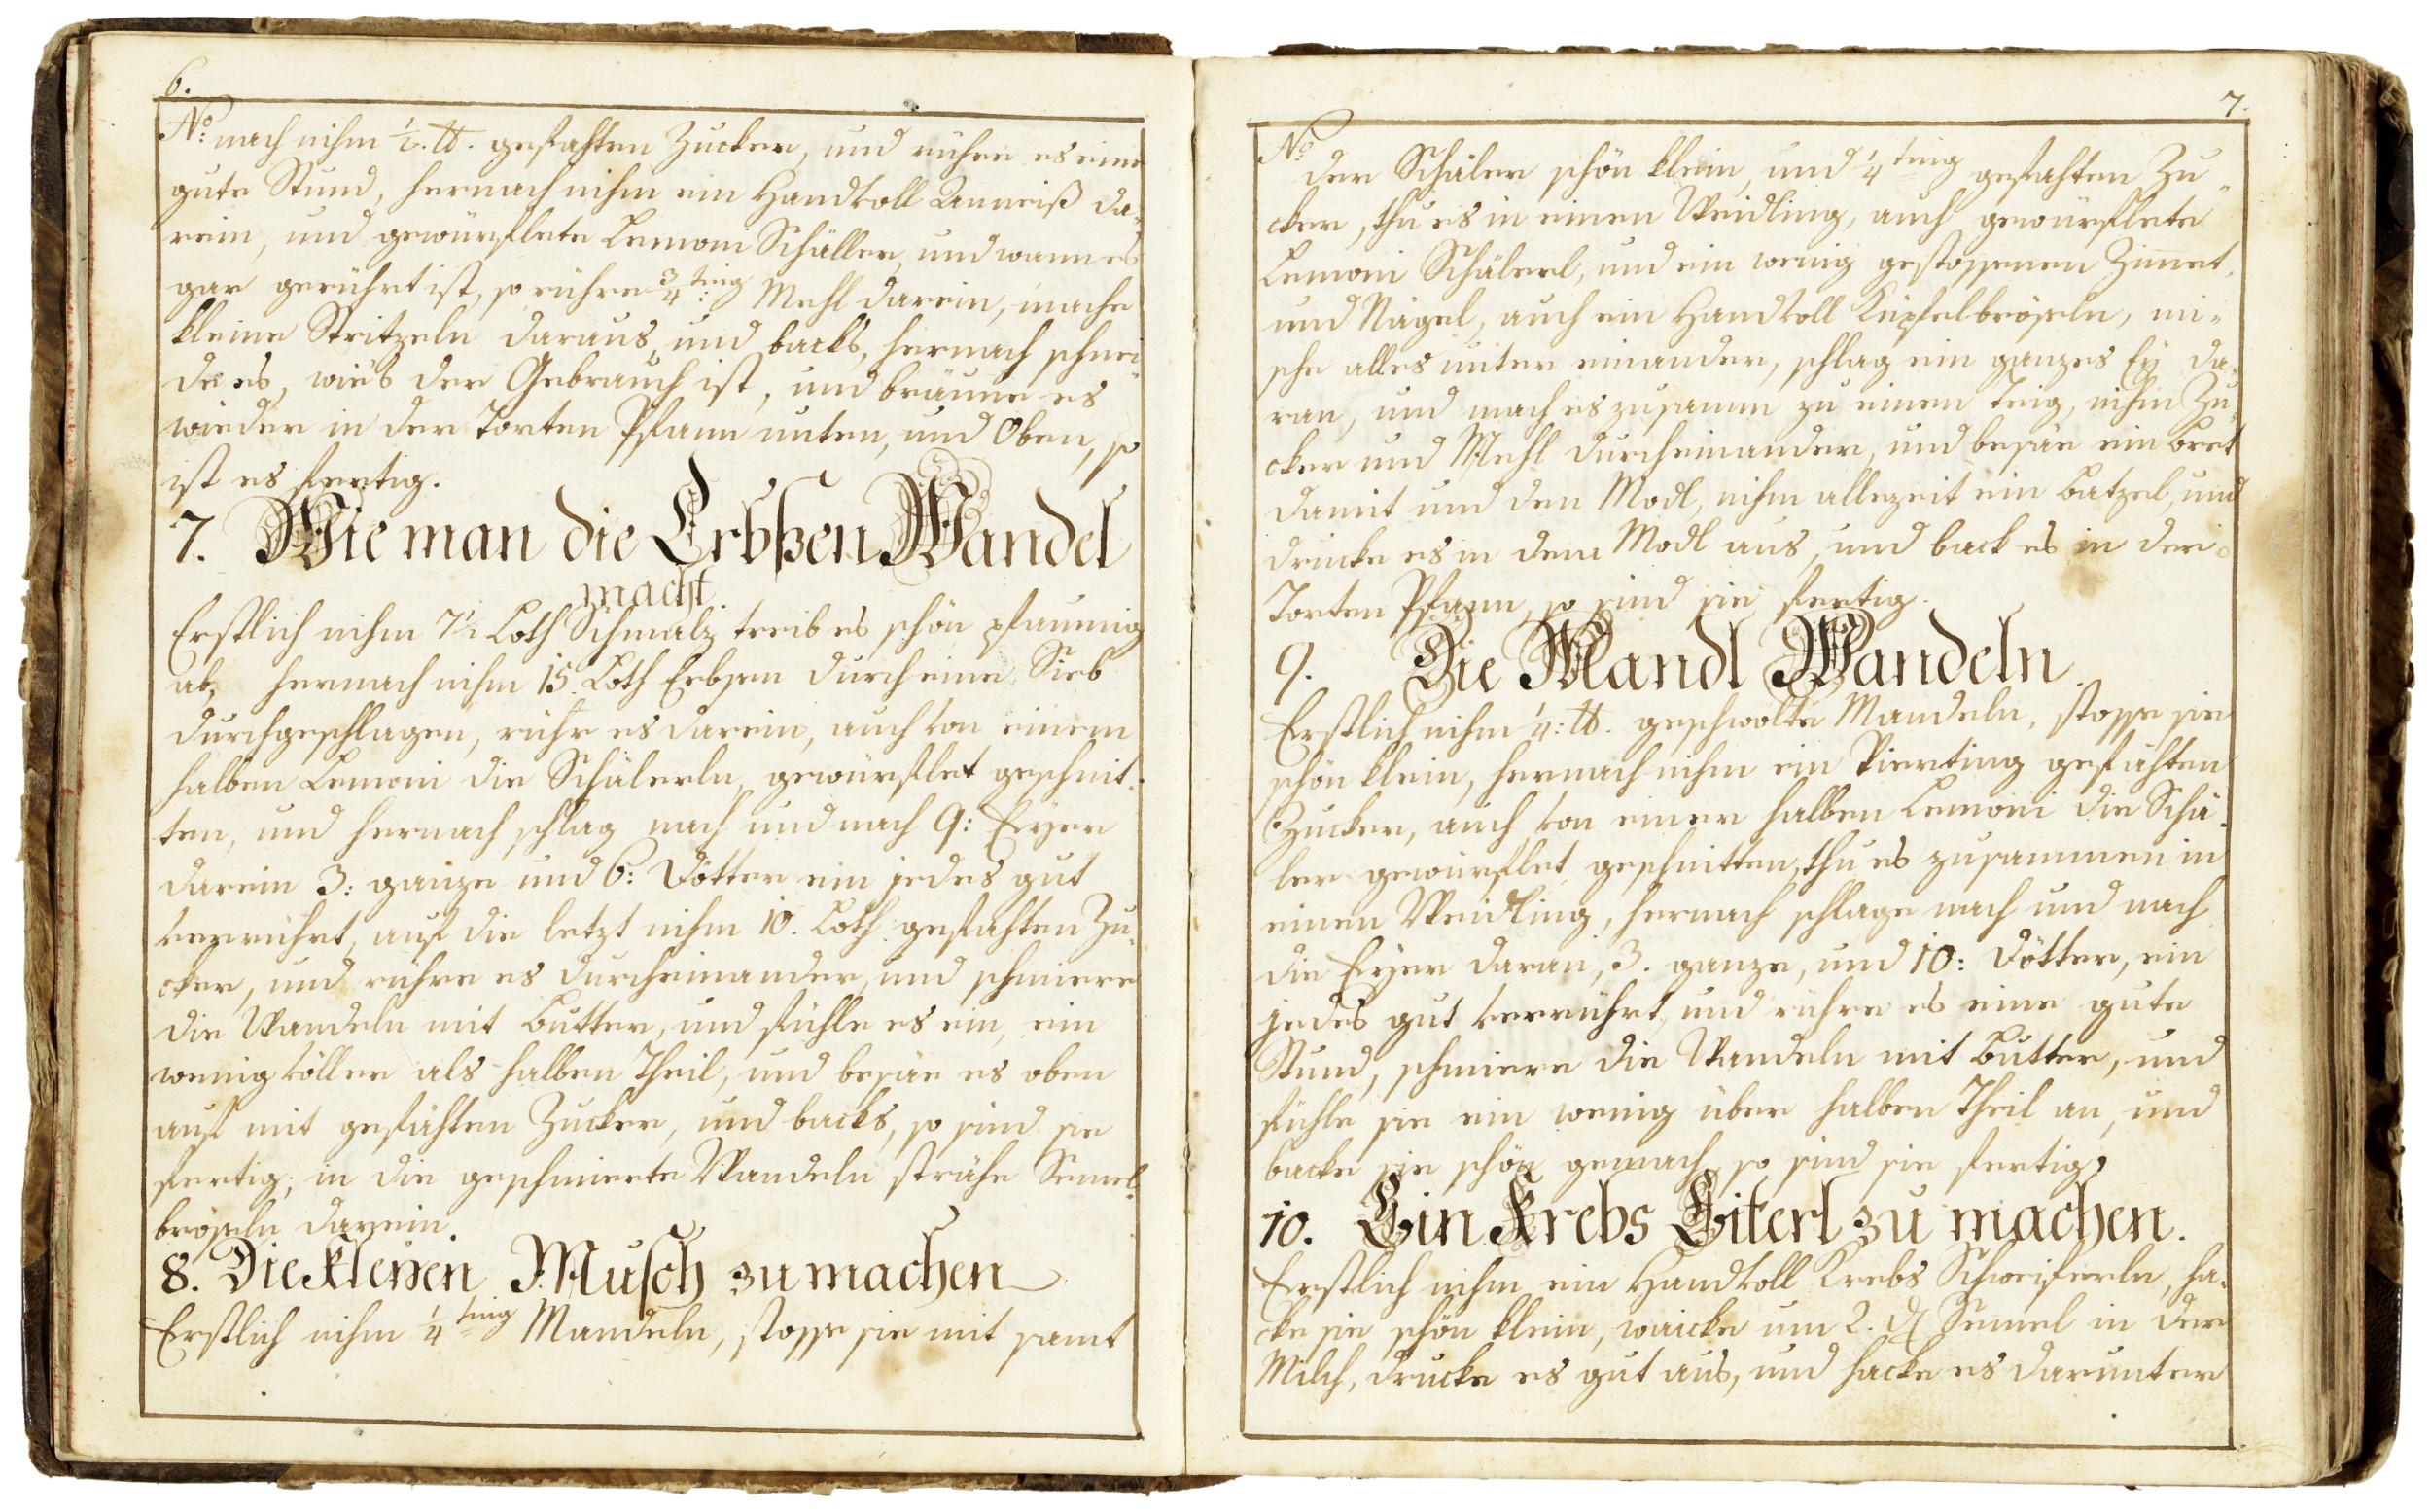 6.
No: nach nihm ½. ℔. gefähten Zucker, und rühre es eine
gute Stund, hernach nihm ein Handvoll Anneiß da-
rein, und gewürflete Lemoni Schäller, und wann es
gar gerührt ist, so rühre ¾ting Mehl darein, mache
kleine Stritzeln daraus, und backs, hernach schnei-
de es, wie's der Gebrauch ist, und bräune es
wieder in der Torten Pfann unten, und Oben, so
ist es fertig.
7. Wie man die Erbßen Wandel
macht.
Erstlich nihm 7½ Loth Schmalz treib es schön pflaumig
ab, hernach nihm 15. Loth Erbsen durch eine Sieb
durchgeschlagen, rühr es darein, auch von einem
halben Lemoni die Schälerln, gewürflet geschnit-
ten, und hernach schlag nach und nach 9: Eyer
darein 3: ganze und 6: Dötter ein jedes gut
verrührt, auf die letzt nihm 10. Loth gefähten Zu-
cker, und rühre es durcheinander, und schmiere
die Wandeln mit Butter, und fühle es ein, ein
wenig völler als halben Theil, und besäe es oben
auf mit gefähten Zucker, und backs, so sind sie
fertig; in die geschmierte Wandeln strähe Semel-
bröseln darein.
8. Die kleinen Musch zu machen
Erstlich nihm ¼ting Mandeln, stosse sie mit samt
7.
No der Schäler schön klein, und ¼ting gefähten Zu-
cker, thu es in einen Weidling, auch gewürflete
Lemoni Schälerl, und ein wenig gestossenen Zimet,
und Nägel, auch ein Handvoll Kipfelbröseln, mi-
sche alles unter einander, schlag ein ganzes Ey da-
ran, und mach es zusamm zu einem Teig, nihm Zu-
cker und Mehl durcheinander, und besäe ein Bret
damit und den Modl, nihm allezeit ein Batzel, und
drucke es in dem Modl aus, und back es in der
Torten Pfann, so sind sie fertig.
9. Die Mandl Wandeln.
Erstlich nihm ¼: ℔. geschwolte Mandeln, stosse sie
schön klein, hernach nihm ein Vierting gefähten
Zucker, auch von einer halben Lemoni die Schä-
ler gewürflet geschnitten, thu es zusammen in
einen Weidling, hernach schlage nach und nach
die Eyer daran, 3. ganze, und 10: Dötter, ein
jedes gut verrührt, und rühre es eine gute
Stund, schmiere die Wandeln mit Butter, und
fühle sie ein wenig über halben Theil an, und
backe sie schön gemach, so sind sie fertig.
10. Ein Krebs Eiterl zu machen.
Erstlich nihm ein Handvoll Krebs Schweiferln, ha-
cke sie schön klein, waicke um 2. d Semel in der
Milch, drucke es gut aus, und hacke es darunter